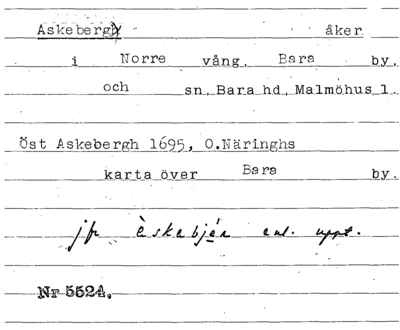 Askebergh åker
i Norre vång, Bara by.
och sn, Bara hd, Malmöhus l.
Öst Askebergh 1695, O.Näringhs
karta över Bara by.
jfr èskabjéa enl. uppt.
Nr 5524.